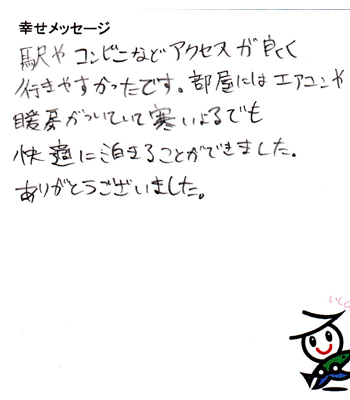 幸せメッセージ
駅や コンビニなど アクセスが良く
行きやすかったです。部屋には エアコンや
暖房がついていて 寒いよるでも
快適に泊まることができました。
ありがとうございました。